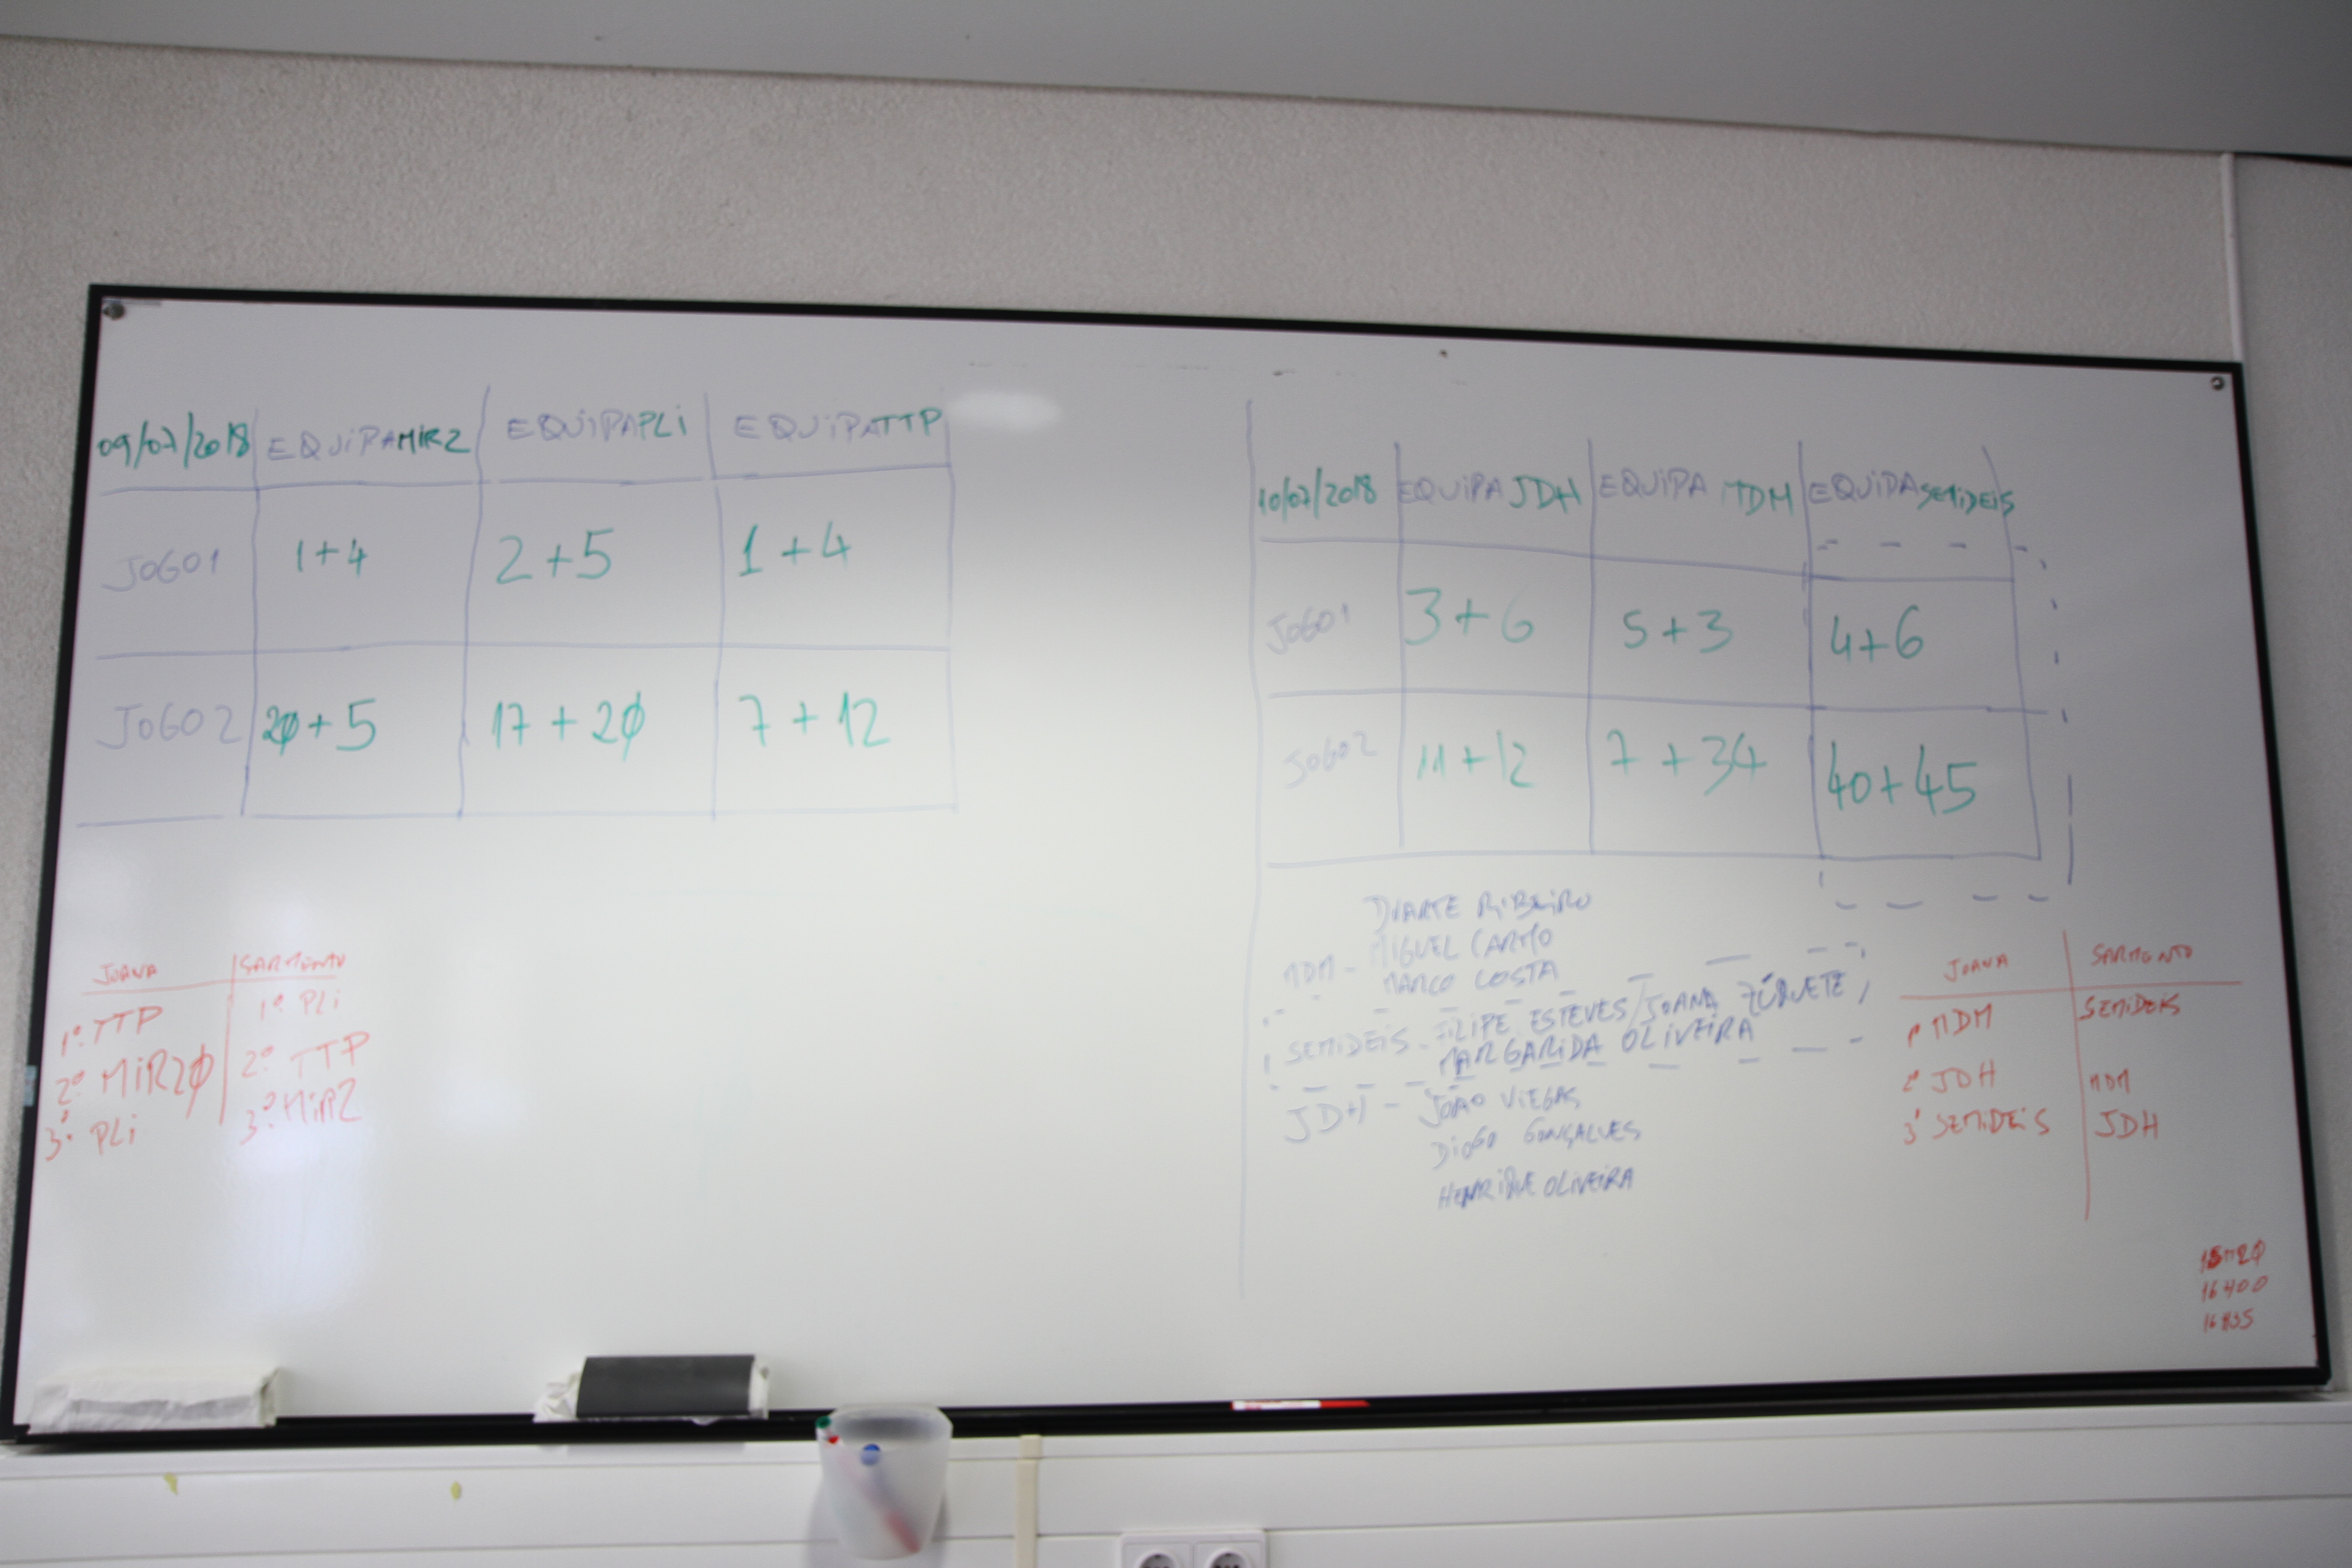 09/07/2018 EQUIPA MIR2 EQUIPA PLI EQUIPA TTP
JOGO1 1+4 2+5 1+4
JOGO2 20+5 17+20 7+12
JOANA SARMENTO
1º TTP 1º PLI
2º MIR20 2º TTP
3º PLI 3º MIR2
10/07/2018 EQUIPA JDH EQUIPA MDM EQUIPA SEMIDEIS
JOGO1 3+6 5+3 4+6
JOGO2 11+12 7+34 40+45
DUARTE RIBEIRO
MDM - MIGUEL CARMO
MARCO COSTA
SEMIDEIS - FILIPE ESTEVES/JOANA ZÚQUETE/
MARGARIDA OLIVEIRA
JDH - JOÃO VIEGAS
DIOGO GONÇALVES
HENRIQUE OLIVEIRA
JOANA SARMENTO
1º MDM SEMIDEIS
2º JDH MDM
3º SEMIDEIS JDH
16H00